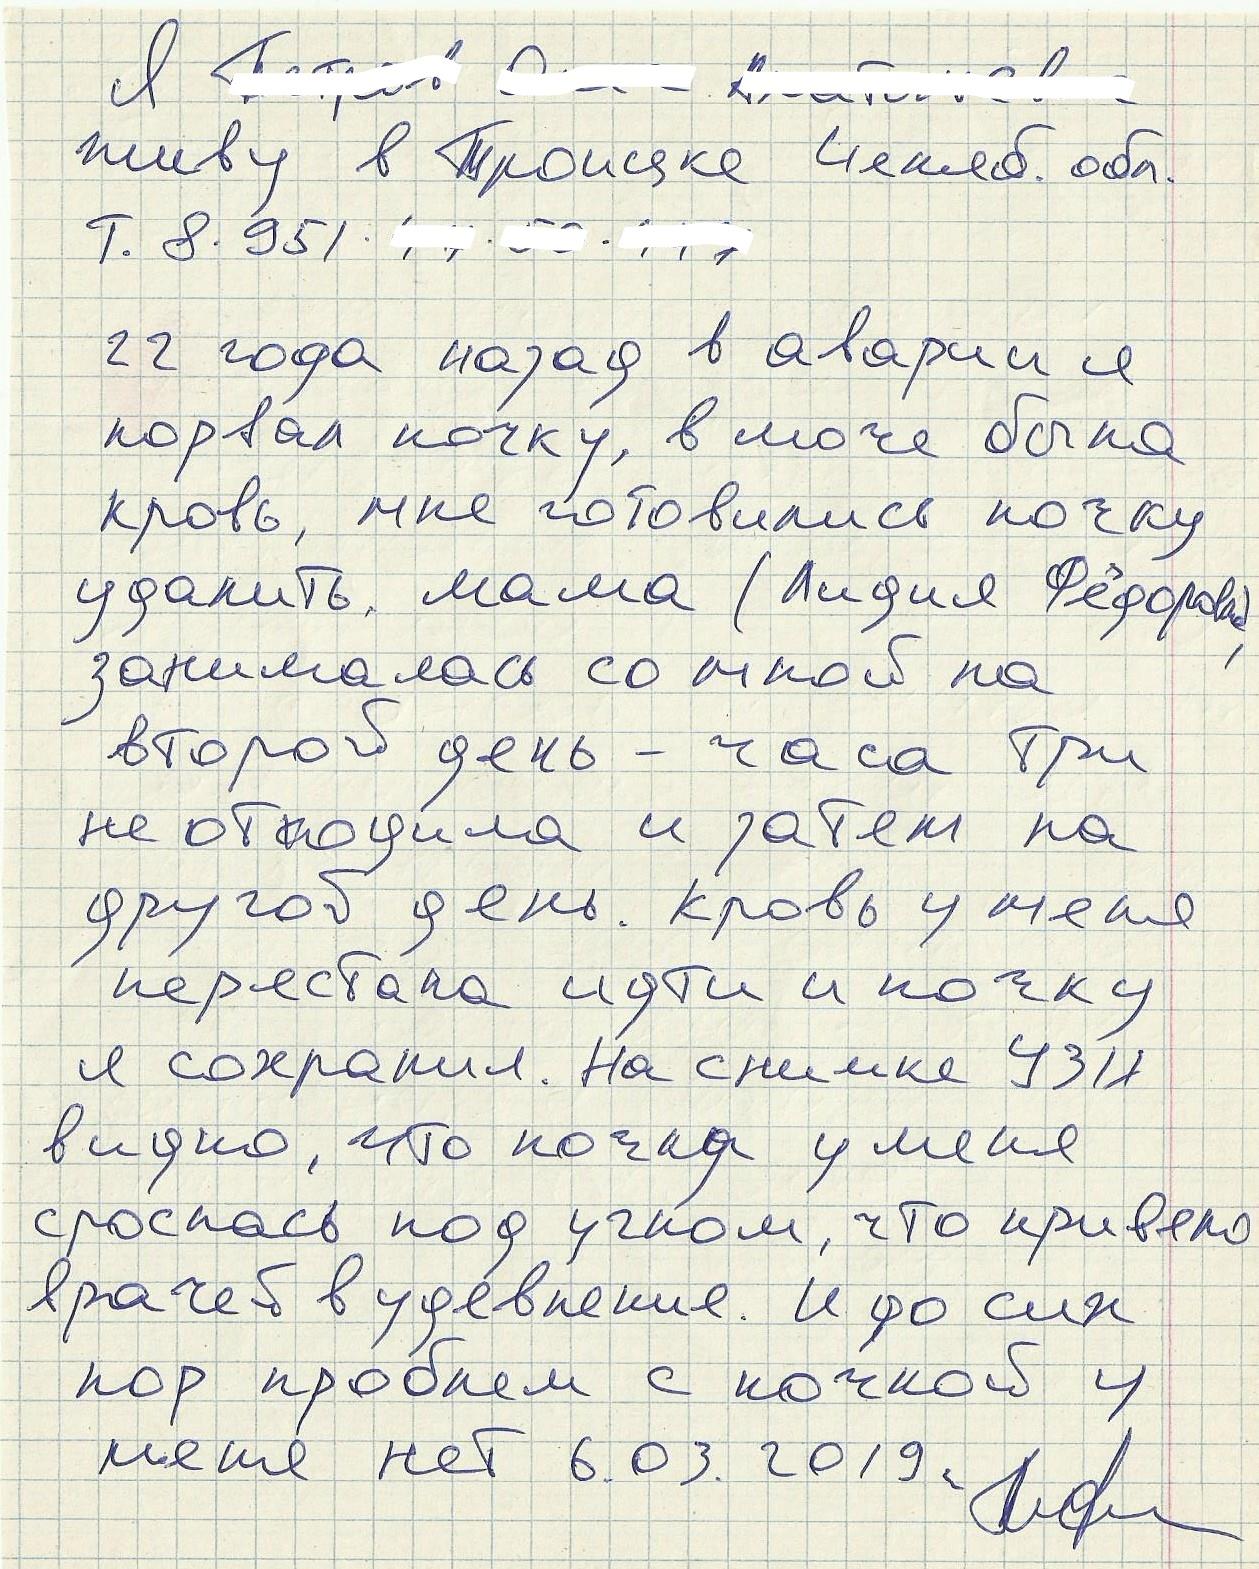 Я
живу в Троицке Челяб. обл.
Т. 8. 951.
22 года назад в аварии я
порвал почку, в моче была
кровь, мне готовились почку
удалить. мама (Лидия Фёдоровна),
занималась со мной на
второй день – часа три
не отходила и затем на
другой день. Кровь у меня
перестала идти и почку
я сохранил. На снимке УЗИ
видно, что почка у меня
срослась под углом, что привело
врачей в удевление. И до сих
пор проблем с почкой у
меня нет 6.03.2019.